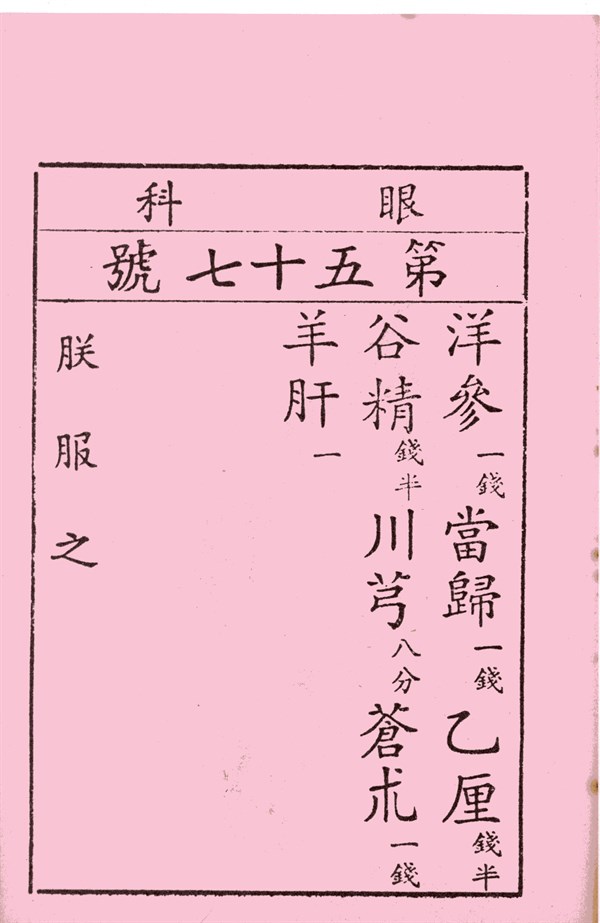 眼科
第五十七號
洋參一錢當歸一錢乙厘錢半
谷精錢半川芎八分蒼朮一錢
羊肝一
朕服之